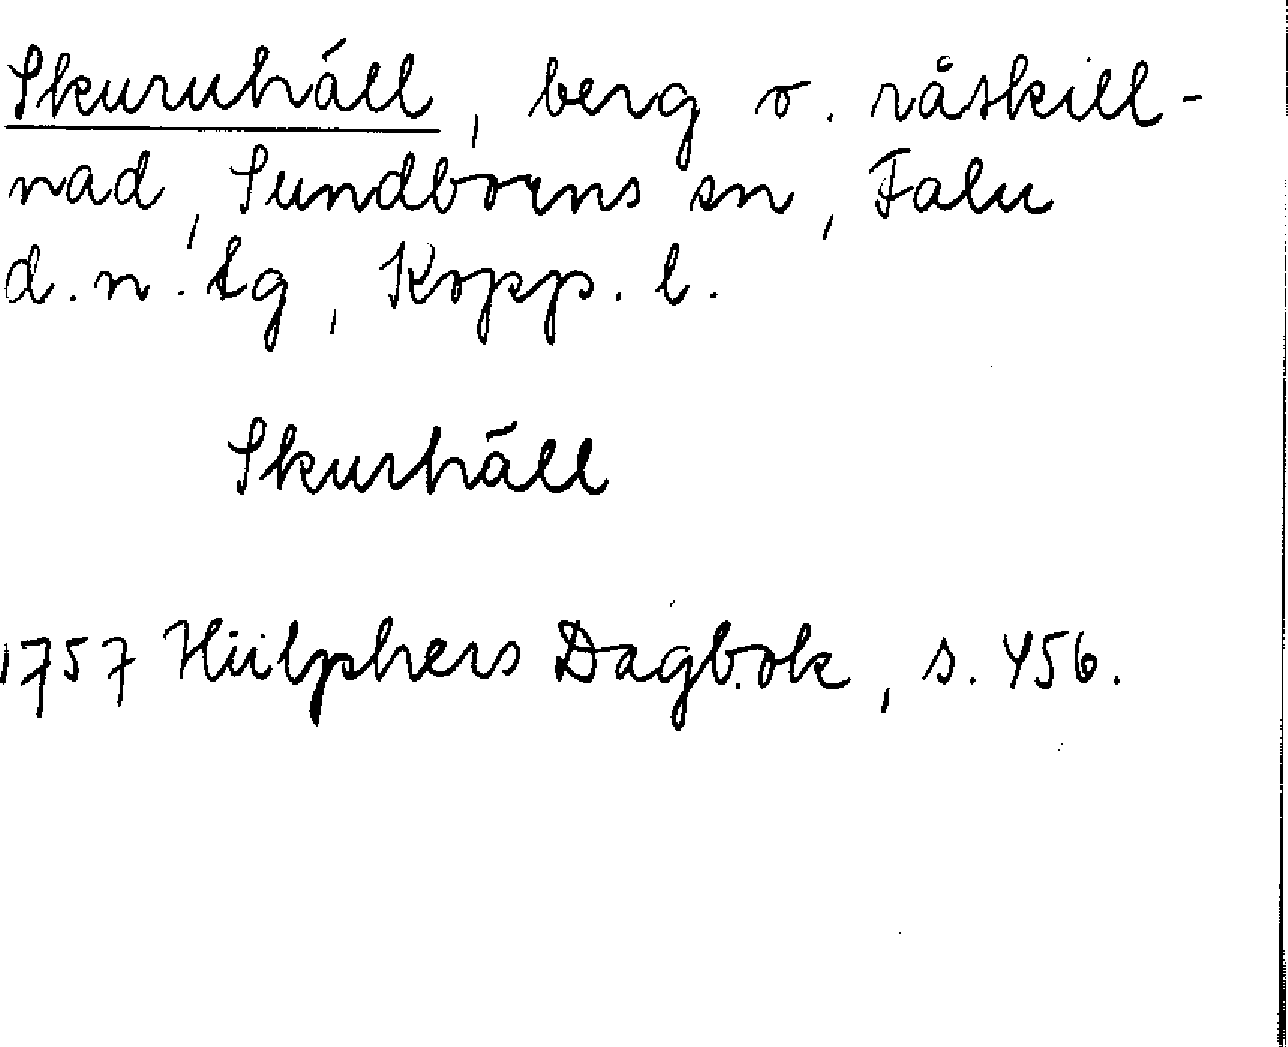 Skuruhäll, berg o. råskill-
nad, Sundborns sn, Falu
d.n. tg, Kopp. l.
Skurhäll
1757 Hülphers Dagbok, s. 456.